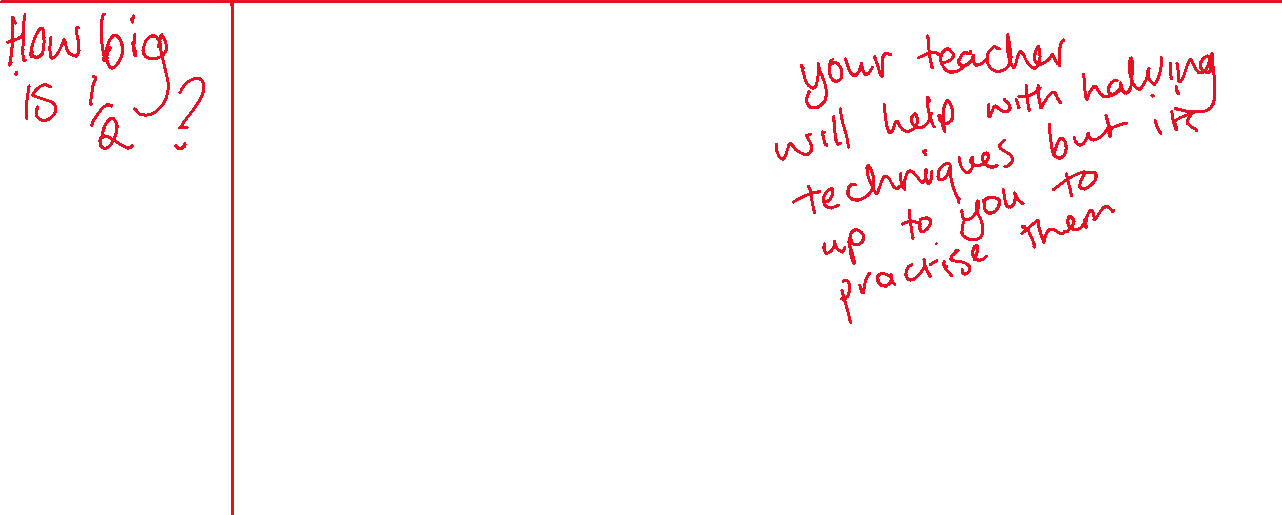 How big
is 1/2 ?
your teacher
will help with halving
techniques but it's
up to you to
practise them